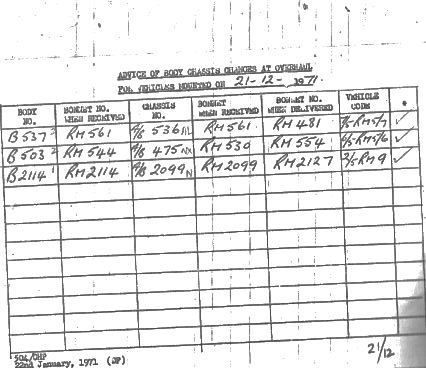 ADVICE OF BODY CHASSIS CHANGES AT OVERHAUL
FOR VEHICLES MOUNTED ON 21-12-1971.
BODY NO. BONNET NO. WHEN RECEIVED CHASSIS NO. BONNET WHEN RECEIVED BONNET NO. WHEN DELIVERED VEHICLE CODE *
B537² RM561 536 RM561 RM481 ✓
B503² RM544 475 NX RM530 RM554 ✓
B2114¹ RM2114 2099 N RM2099 RM2127 2/5RM9 ✓
504/CHP
22nd January, 1971 (JP)
21/12